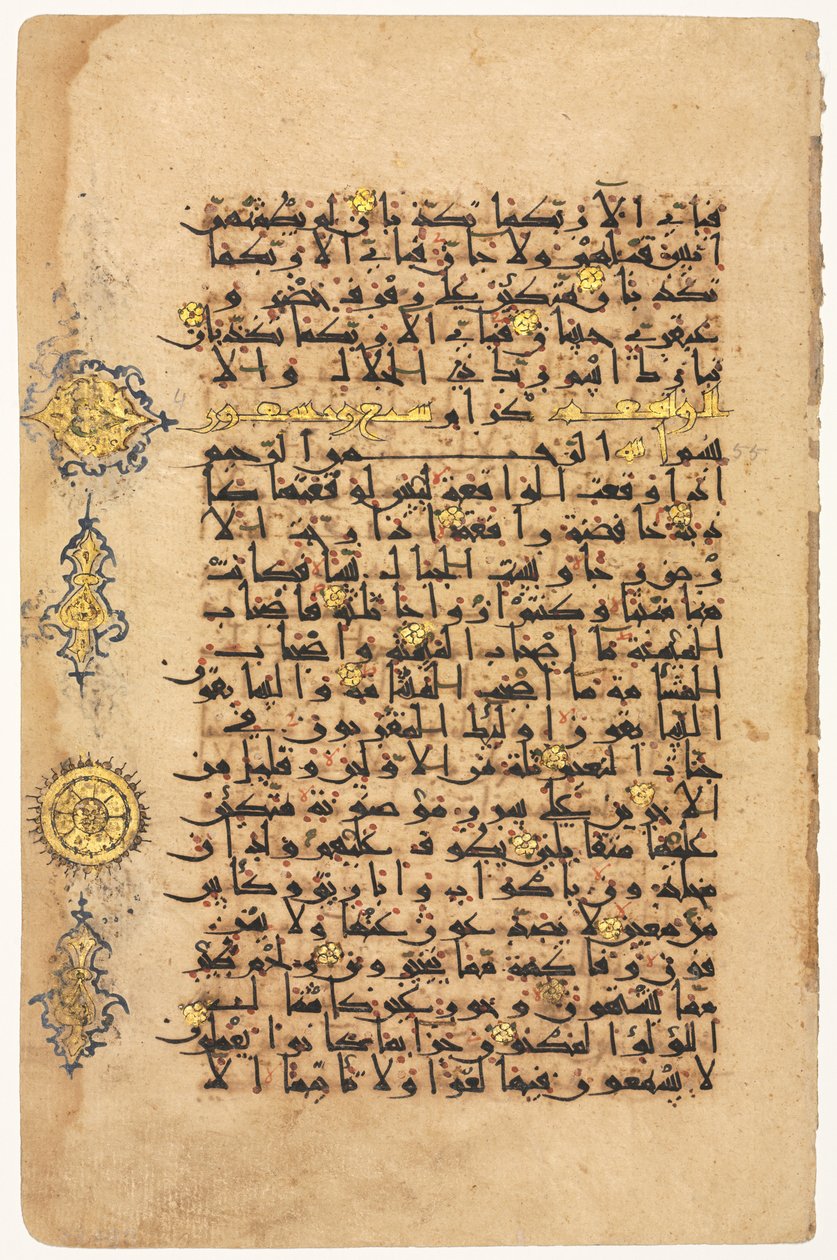 فباي الاء ربكما تكذبان لم يطمثهن
انس قبلهم ولا جان فباي الاء ربكما
تكذبان متكئين على رفرف خضر و
عبقري حسان فباي الاء ربكما تكذبان
تبارك اسم ربك ذي الجلال والا
الواقعة كرام وتسعون
بسم الله الرحمن الرحيم
اذا وقعت الواقعة ليس لوقعتها كا
ذبة خافضة رافعة اذا رجت الا
رض رجا وبست الجبال بسا فكانت
هبا منبثا وكنتم ازواجا ثلثة فاصحاب
الميمنة ما اصحاب الميمنة واصحاب
المشأمة ما اصحب المشأمة والسابقون
السابقون اولئك المقربون في
جنات النعيم ثلة من الاولين وقليل من
الاخرين على سرر موضونة متكئين
عليها متقابلين يطوف عليهم ولدان
مخلدون باكواب واباريق وكأس
من معين لا يصدعون عنها ولا ينز
فون وفاكهة مما يتخيرون ولحم طير
مما يشتهون وحور عين كامثال
اللؤلؤا المكنون جزا بما كانوا يعملون
لا يسمعون فيها لغوا ولا تأثيما الا
4
55